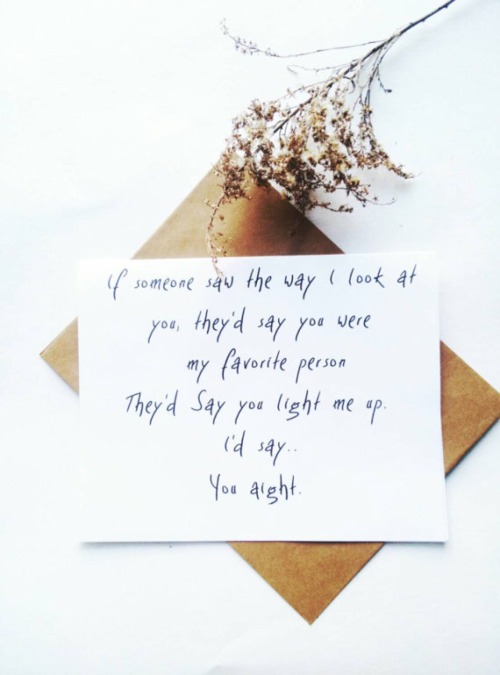 If someone saw the way I look at
you, they'd say you were
my favorite person
They'd Say you light me up.
I'd say..
You aight.